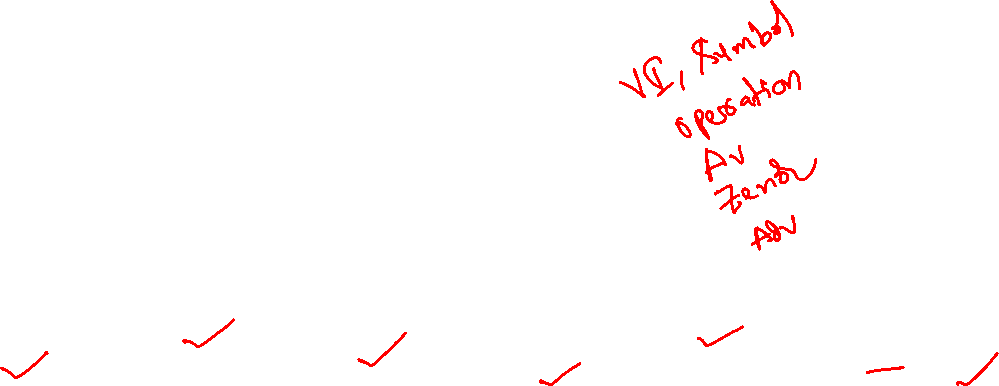 VI, Symbol
operation
AV
Zener
Adv